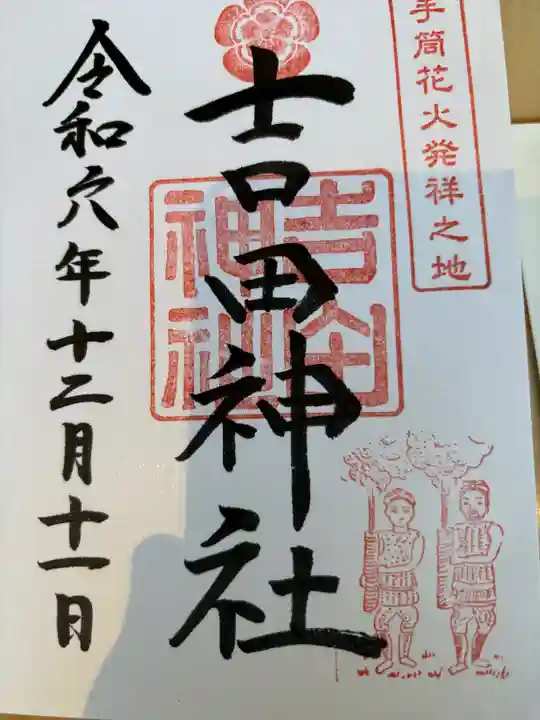 手筒花火発祥之地
吉田神社
吉田神社
令和六年十二月十一日